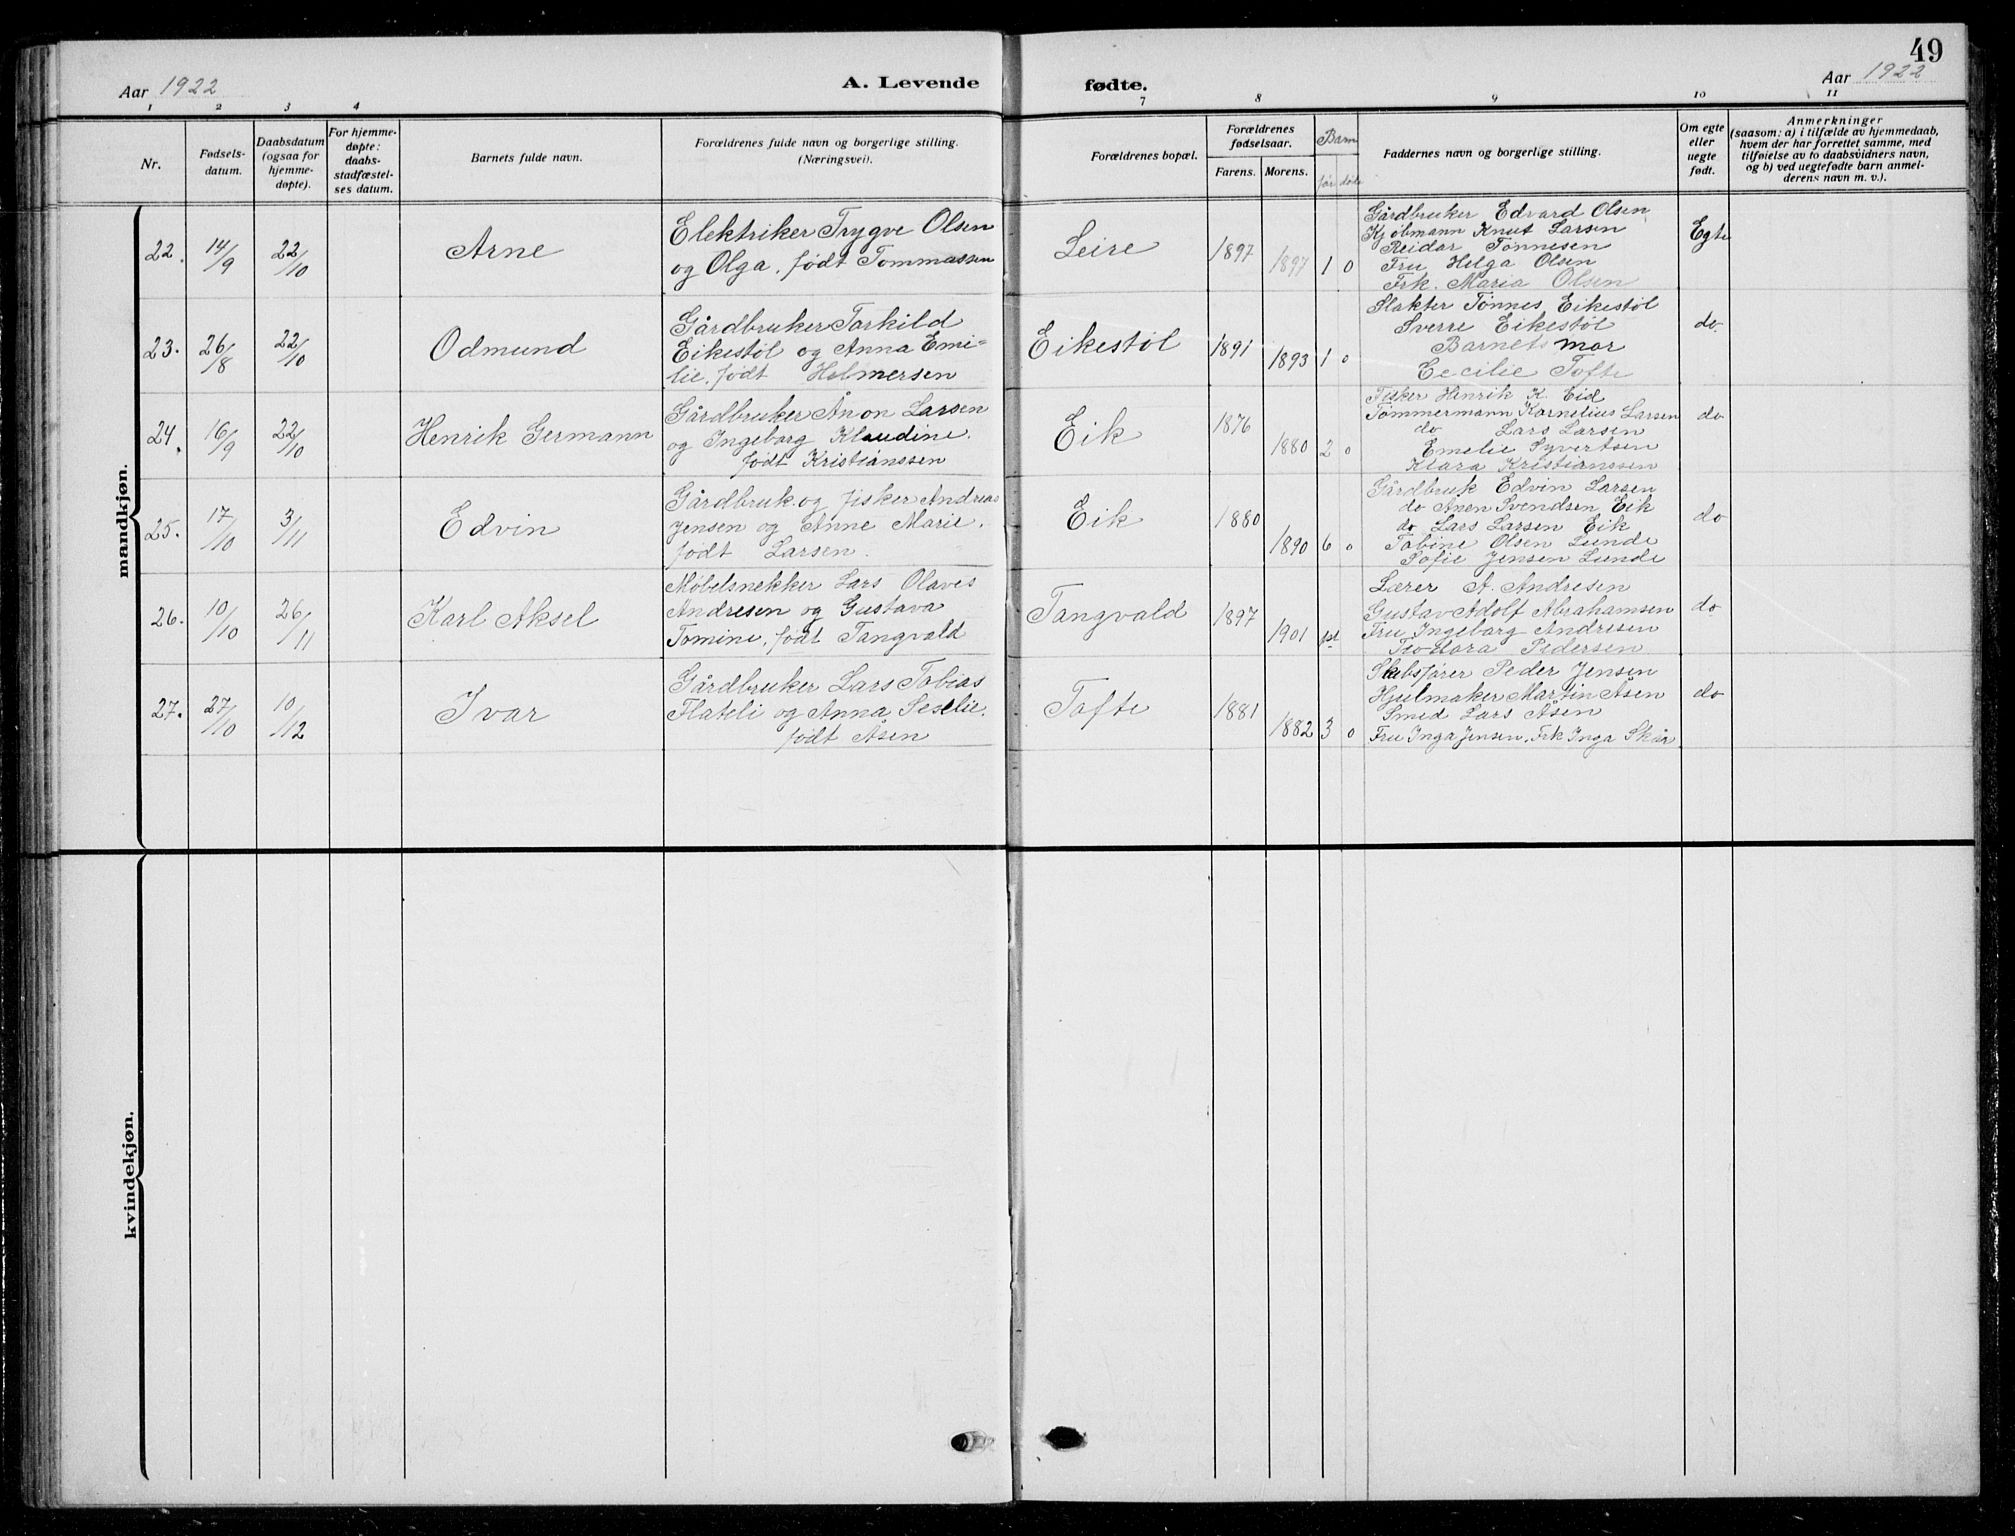 49
Aar 1922
A. Levende
fødte.
Aar 1922
1 2 3 4 7 8 9 10 11
Nr.
Fødsels-
datum.
Daabsdatum
(ogsaa for
hjemme-
døpte).
For hjemme-
døpte:
daabs-
stadfæstel-
ses datum.
Barnets fulde navn.
Forældrenes fulde navn og borgerlige stilling.
(Næringsvei).
Forældrenes bopæl.
Forældrenes
fødselsaar.
Farens. Morens.
Barn
før døde
Faddernes navn og borgerlige stilling.
Om egte
eller
uegte
født.
Anmerkninger
(saasom: a) i tilfælde av hjemmedaab,
hvem der har forrettet samme, med
tilføielse av to daabsvidners navn,
og b) ved uegtefødte barn anmel-
derens navn m. v.).
mandkjøn.
22. 14/9 22/10
Arne
Elektriker Trygve Olsen
og Olga, født Tommassen
Leire
1897 1897 1 0
Gårdbruker Edvard Olsen
Kjøbmann Knut Larsen
Reidar Tønnesen
Fru Helga Olsen
Frk. Maria Olsen
Egte
23. 26/8 22/10
Odmund
Gårdbruker Tarkild
Eikestøl og Anna Emi-
lie, født Holmersen
Eikestøl
1891 1893 1 0
Slakter Tønnes Eikestøl
Sverre Eikestøl
Barnets mor
Cecilie Tofte
do
24. 16/9 22/10
Henrik Germann
Gårdbruker Ånon Larsen
og Ingeborg Klaudine.
født Kristianssen
Eik
1876 1880 2 0
Fisker Henrik K. Eid
Tømmermann Kornelius Larsen
do Lars Larsen
Emelie Syvertsen
Klara Kristianssen
do
25. 17/10 3/11
Edvin
Gårdbruk. og fisker Andreas
Jensen og Anne Marie.
født Larsen.
Eik
1880 1890 6 0
Gårdbruk Edvin Larsen
do Anen Svendsen Eik
do Lars Larsen Eik
Tobine Olsen Lunde
Sofie Jensen Lunde
do
26. 10/10 26/11
Karl Aksel
Møbelsnekker Lars Olaves
Andresen og Gustava
Tomine, født Tangvald
Tangvald
1897 1901 1st
Lærer A. Andresen
Gustav Adolf Abrahamsen
Fru Ingeborg Andresen
Teodora Pedersen
do
27. 27/10 10/12
Ivar
Gårdbruker Lars Tobias
Flateli og Anna Seselie.
født Åsen
Tofte
1881 1882 3 0
Skibsfører Peder Jensen
Hjulmaker Martin Åsen
Smed Lars Åsen
Fru Inga Jensen, Frk Inga Skår
do
kvindekjøn.